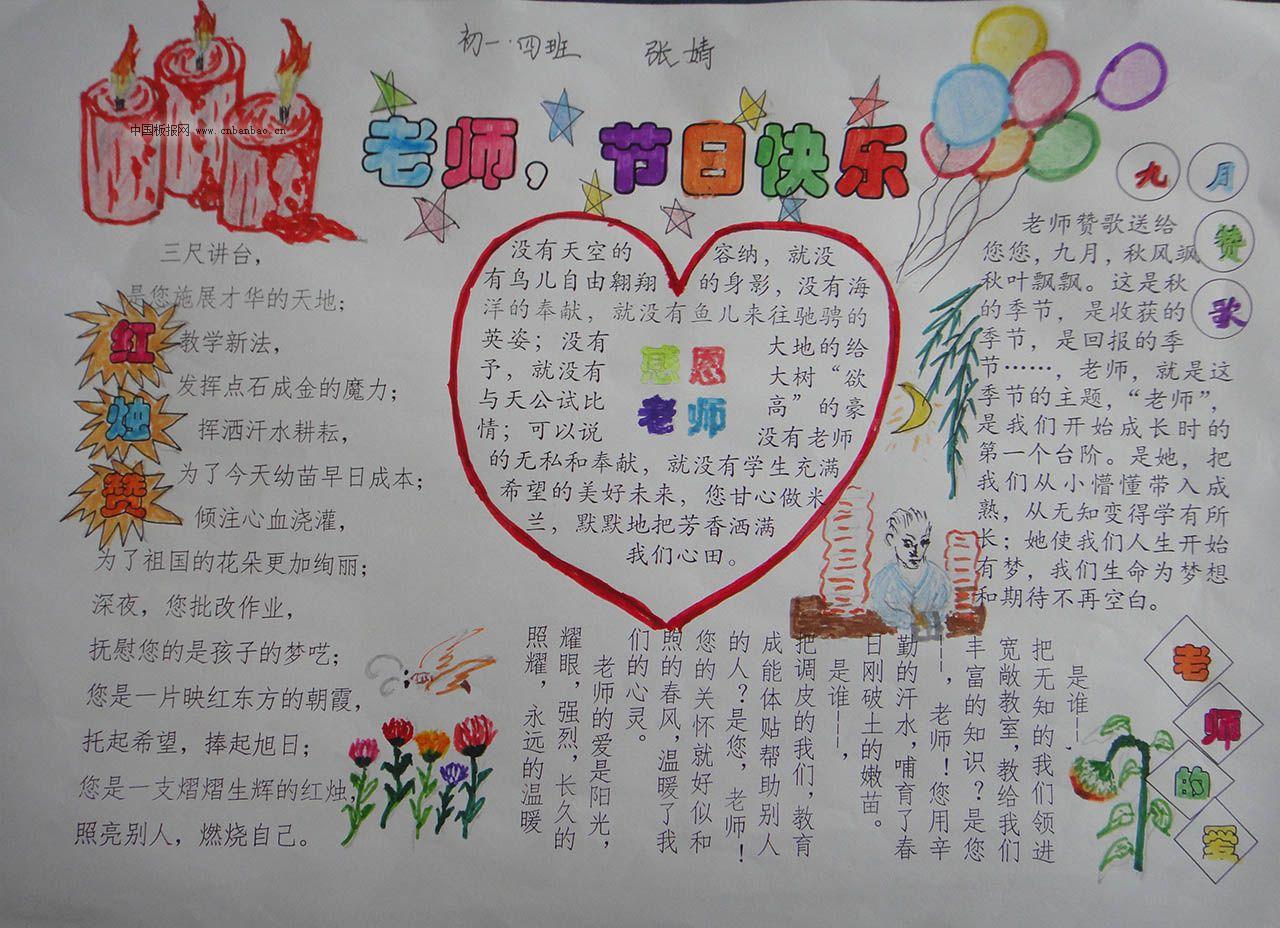 初一·四班 张婧
中国板报网 www.cnbanbao.cn
老师，节日快乐
红烛赞
三尺讲台，
是您施展才华的天地；
教学新法，
发挥点石成金的魔力；
挥洒汗水耕耘，
为了今天幼苗早日成本；
倾注心血浇灌，
为了祖国的花朵更加绚丽；
深夜，您批改作业，
抚慰您的是孩子的梦呓；
您是一片映红东方的朝霞，
托起希望，捧起旭日；
您是一支熠熠生辉的红烛，
照亮别人，燃烧自己。
感恩
老师
没有天空的容纳，就没
有鸟儿自由翱翔的身影，没有海
洋的奉献，就没有鱼儿来往驰骋的
英姿；没有大地的给
予，就没有大树“欲
与天公试比高”的豪
情；可以说没有老师
的无私和奉献，就没有学生充满
希望的美好未来，您甘心做米
兰，默默地把芳香洒满
我们心田。
九月赞歌
老师赞歌送给
您您，九月，秋风飒
秋叶飘飘。这是秋
的季节，是收获的
季节，是回报的季
节……，老师，就是这
季节的主题，“老师”，
是我们开始成长时的
第一个台阶。是她，把
我们从小懵懂带入成
熟，从无知变得学有所
长；她使我们人生开始
有梦，我们生命为梦想
和期待不再空白。
老师的爱
是谁——，
把无知的我们领进
宽敞教室，教给我们
丰富的知识？是您
——，老师！您用辛
勤的汗水，哺育了春
日刚破土的嫩苗。
是谁——，
把调皮的我们，教育
成能体贴帮助别人
的人？是您，老师！
您的关怀就好似和
煦的春风，温暖了我
们的心灵。
老师的爱是阳光，
耀眼，强烈，长久的
照耀，永远的温暖